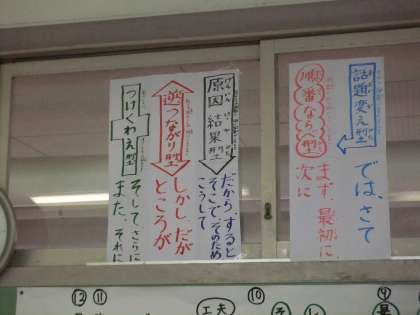 話題変え型
では、さて
順番ならべ型
まず、最初に
次に
原因結果型
だから、すると
そこで、そのため
こうして
逆つながり型
しかし、だが
ところが
つけくわえ型
そして、さらに
また、それに
④
⑩
工夫
⑪
⑫